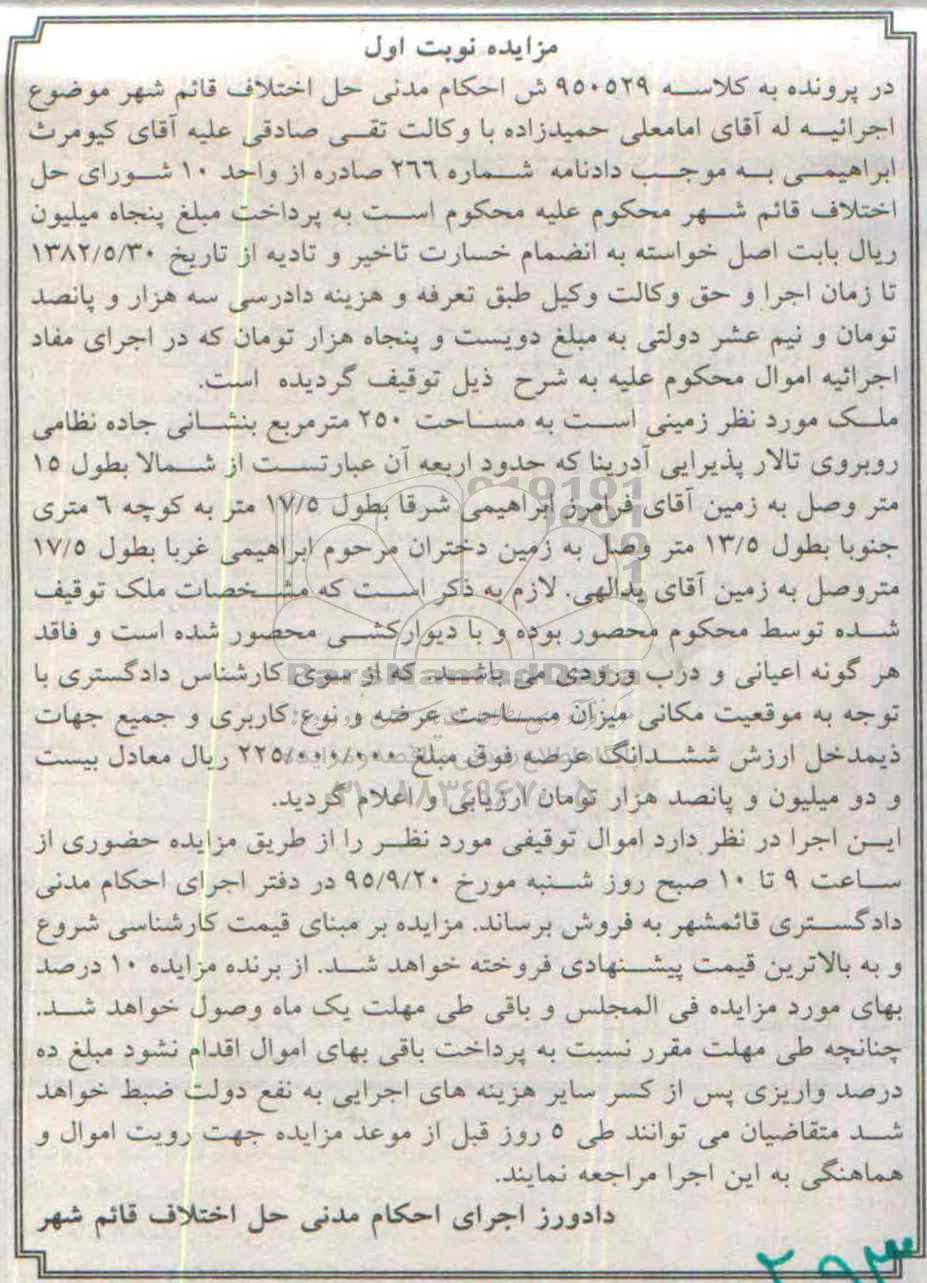 مزایده نوبت اول
در پرونده به کلاسه ۹۵۰۵۲۹ ش احکام مدنی حل اختلاف قائم شهر موضوع
اجرائیه له آقای امامعلی حمیدزاده با وکالت تقی صادقی علیه آقای کیومرث
ابراهیمی به موجب دادنامه شماره ۲۶۶ صادره از واحد ۱۰ شورای حل
اختلاف قائم شهر محکوم علیه محکوم است به پرداخت مبلغ پنجاه میلیون
ریال بابت اصل خواسته به انضمام خسارت تاخیر و تادیه از تاریخ ۱۳۸۲/۵/۳۰
تا زمان اجرا و حق وکالت وکیل طبق تعرفه و هزینه دادرسی سه هزار و پانصد
تومان و نیم عشر دولتی به مبلغ دویست و پنجاه هزار تومان که در اجرای مفاد
اجرائیه اموال محکوم علیه به شرح ذیل توقیف گردیده است.
ملک مورد نظر زمینی است به مساحت ۲۵۰ مترمربع بنشانی جاده نظامی
روبروی تالار پذیرایی آدرینا که حدود اربعه آن عبارتست از شمالا بطول ۱۵
متر وصل به زمین آقای فرامرز ابراهیمی شرقا بطول ۱۷/۵ متر به کوچه ۶ متری
جنوبا بطول ۱۳/۵ متر وصل به زمین دختران مرحوم ابراهیمی غربا بطول ۱۷/۵
متروصل به زمین آقای یدالهی. لازم به ذکر است که مشخصات ملک توقیف
شده توسط محکوم محصور بوده و با دیوارکشی محصور شده است و فاقد
هر گونه اعیانی و درب ورودی می باشد. که از سوی کارشناس دادگستری با
توجه به موقعیت مکانی میزان مساحت عرضه و نوع کاربری و جمیع جهات
ذیمدخل ارزش ششدانگ عرصه فوق مبلغ ۲۲۵/۰۰۰/۰۰۰ ریال معادل بیست
و دو میلیون و پانصد هزار تومان ارزیابی و اعلام گردید.
این اجرا در نظر دارد اموال توقیفی مورد نظر را از طریق مزایده حضوری از
ساعت ۹ تا ۱۰ صبح روز شنبه مورخ ۹۵/۹/۲۰ در دفتر اجرای احکام مدنی
دادگستری قائمشهر به فروش برساند. مزایده بر مبنای قیمت کارشناسی شروع
و به بالاترین قیمت پیشنهادی فروخته خواهد شد. از برنده مزایده ۱۰ درصد
بهای مورد مزایده فی المجلس و باقی طی مهلت یک ماه وصول خواهد شد.
چنانچه طی مهلت مقرر نسبت به پرداخت باقی بهای اموال اقدام نشود مبلغ ده
درصد واریزی پس از کسر سایر هزینه های اجرایی به نفع دولت ضبط خواهد
شد متقاضیان می توانند طی ۵ روز قبل از موعد مزایده جهت رویت اموال و
هماهنگی به این اجرا مراجعه نمایند.
دادورز اجرای احکام مدنی حل اختلاف قائم شهر
ParsNamadData